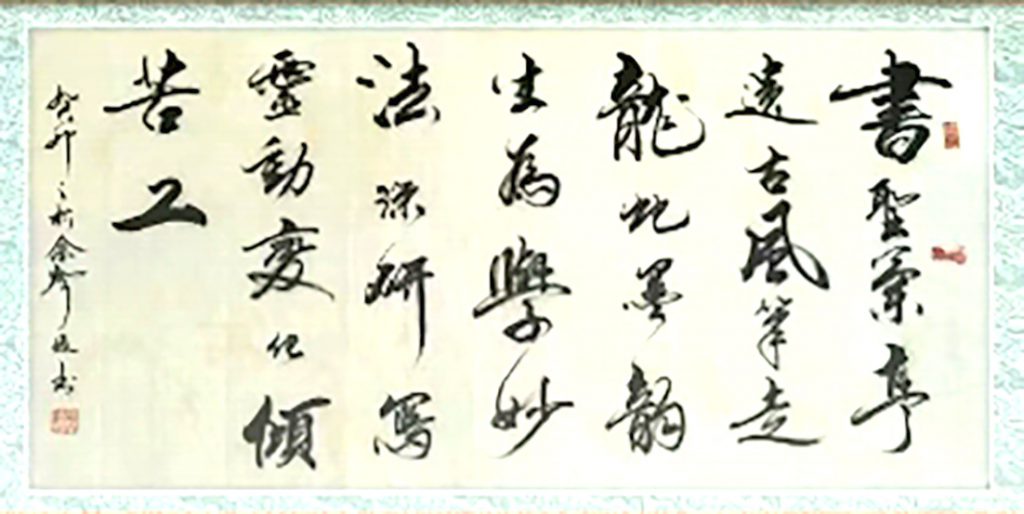 書聖蘭亭
遠古風筆走
龍蛇墨韻
生為學妙
法深研寫
靈動變化傾
苦工
癸卯之秋余书